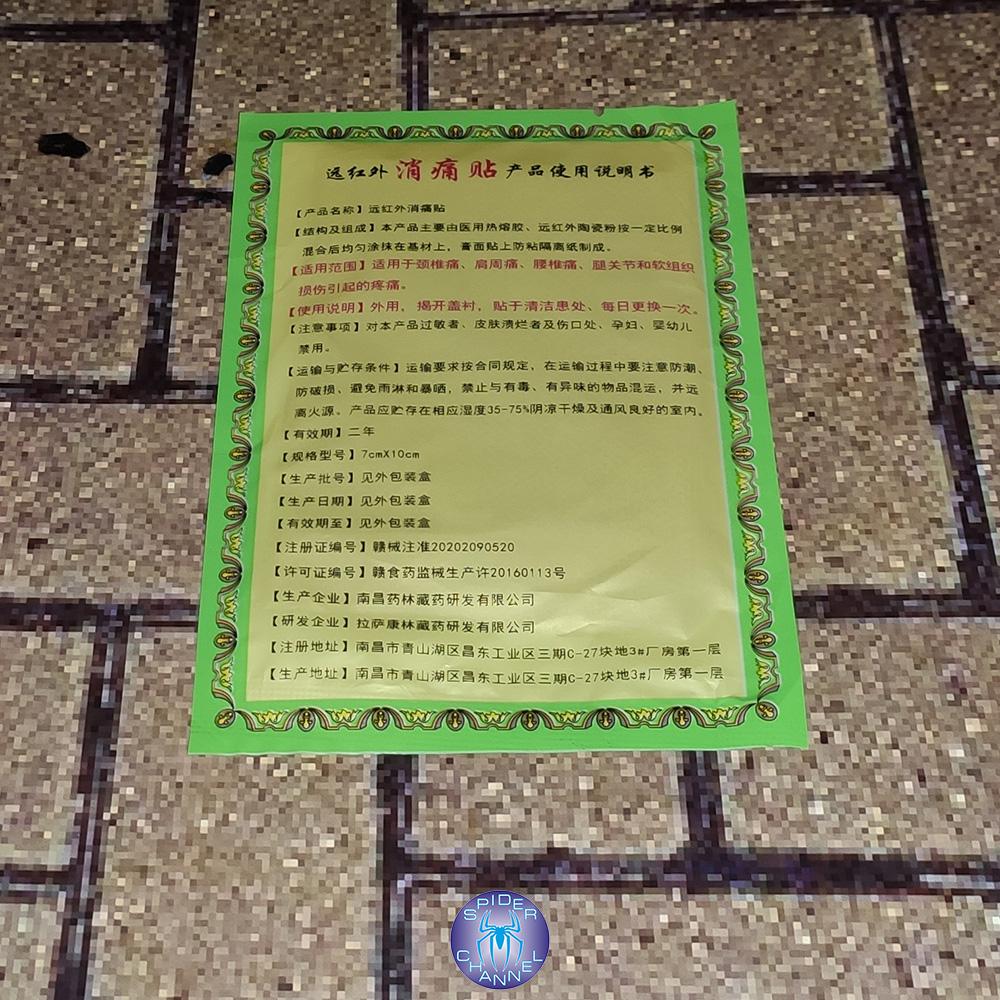 远红外消痛贴产品使用说明书
【产品名称】远红外消痛贴
【结构及组成】本产品主要由医用热熔胶、远红外陶瓷粉按一定比例
混合后均匀涂抹在基材上，膏面贴上防粘隔离纸制成。
【适用范围】适用于颈椎痛、肩周痛、腰椎痛、腿关节和软组织
损伤引起的疼痛。
【使用说明】外用，揭开盖衬，贴于清洁患处、每日更换一次。
【注意事项】对本产品过敏者、皮肤溃烂者及伤口处、孕妇、婴幼儿
禁用。
【运输与贮存条件】运输要求按合同规定，在运输过程中要注意防潮、
防破损、避免雨淋和暴晒，禁止与有毒、有异味的物品混运，并远
离火源。产品应贮存在相应湿度35-75%阴凉干燥及通风良好的室内。
【有效期】二年
【规格型号】7cmX10cm
【生产批号】见外包装盒
【生产日期】见外包装盒
【有效期至】见外包装盒
【注册证编号】赣械注准20202090520
【许可证编号】赣食药监械生产许20160113号
【生产企业】南昌药林藏药研发有限公司
【研发企业】拉萨康林藏药研发有限公司
【注册地址】南昌市青山湖区昌东工业区三期C-27块地3#厂房第一层
【生产地址】南昌市青山湖区昌东工业区三期C-27块地3#厂房第一层
SPIDER
CHANNEL